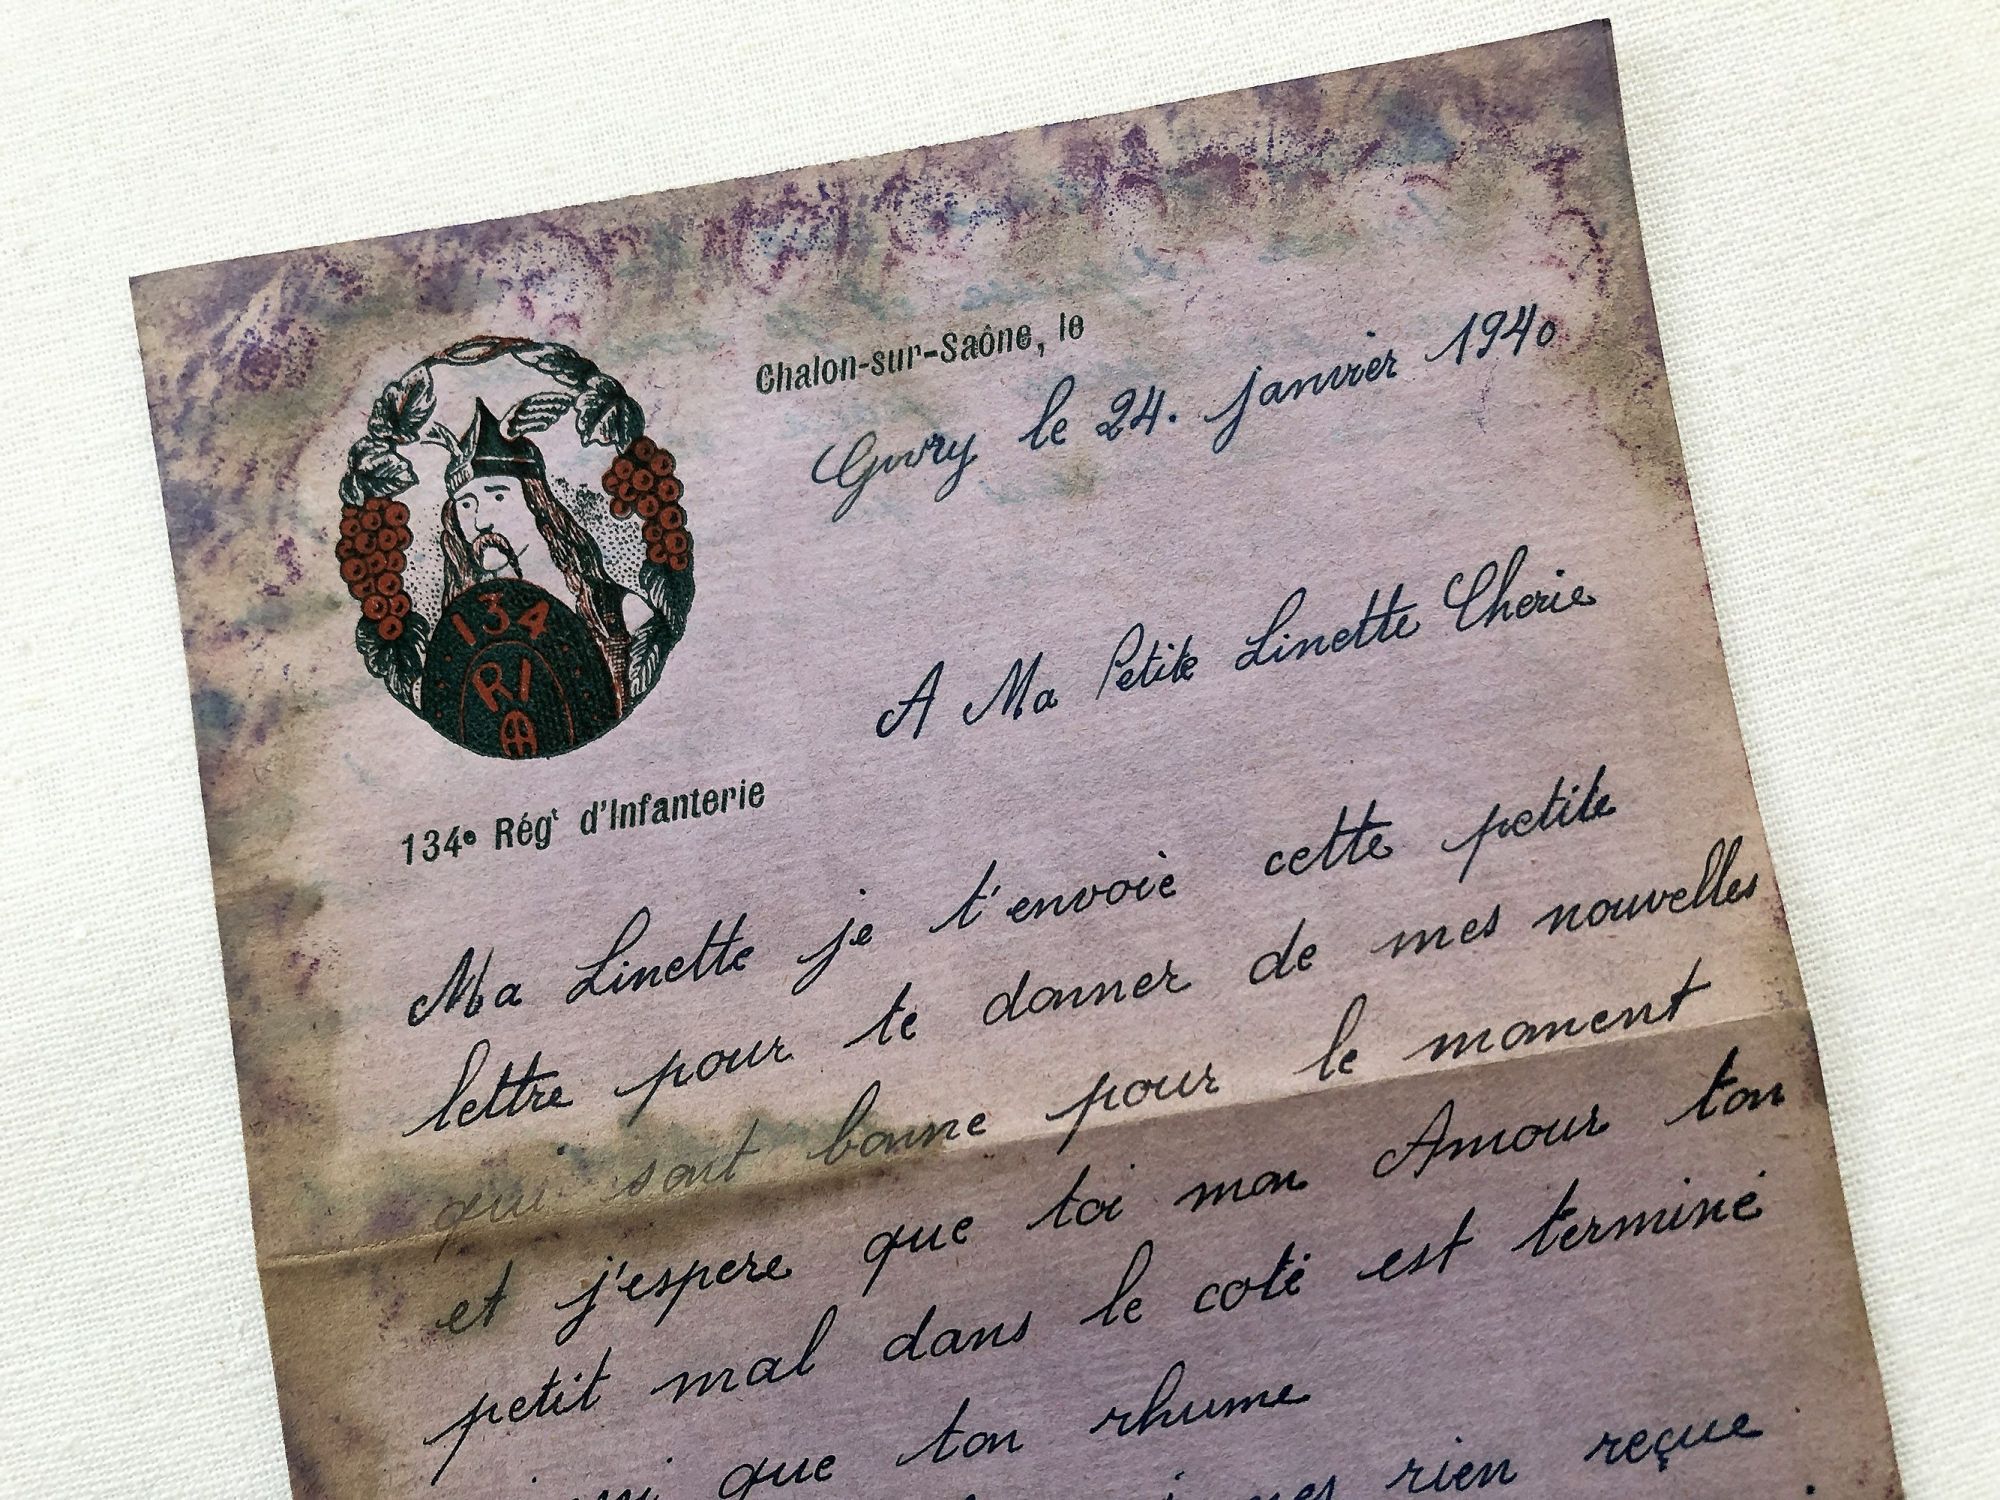 Chalon-sur-Saône, le
Givry le 24. janvier 1940
134
RI
134e Régt d'Infanterie
A Ma Petite Linette Cherie
Ma Linette je t'envoie cette petite
lettre pour te donner de mes nouvelles
qui sont bonne pour le moment
et j'espere que toi mon Amour ton
petit mal dans le coté est terminé
que ton rhume
rien reçue